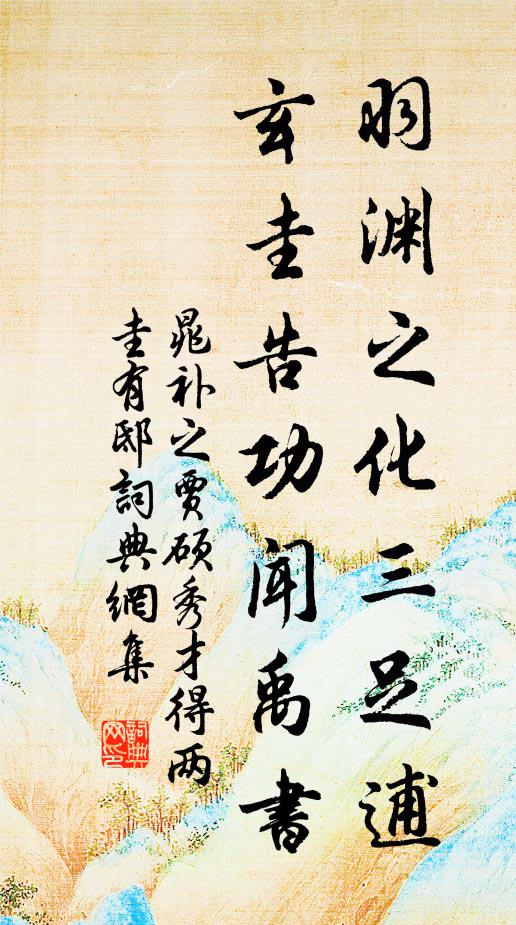 羽渊之化三足逋
玄圭告功闻禹書
晁补之贾碩秀才得两
圭有邸詞典網集
詞典网印